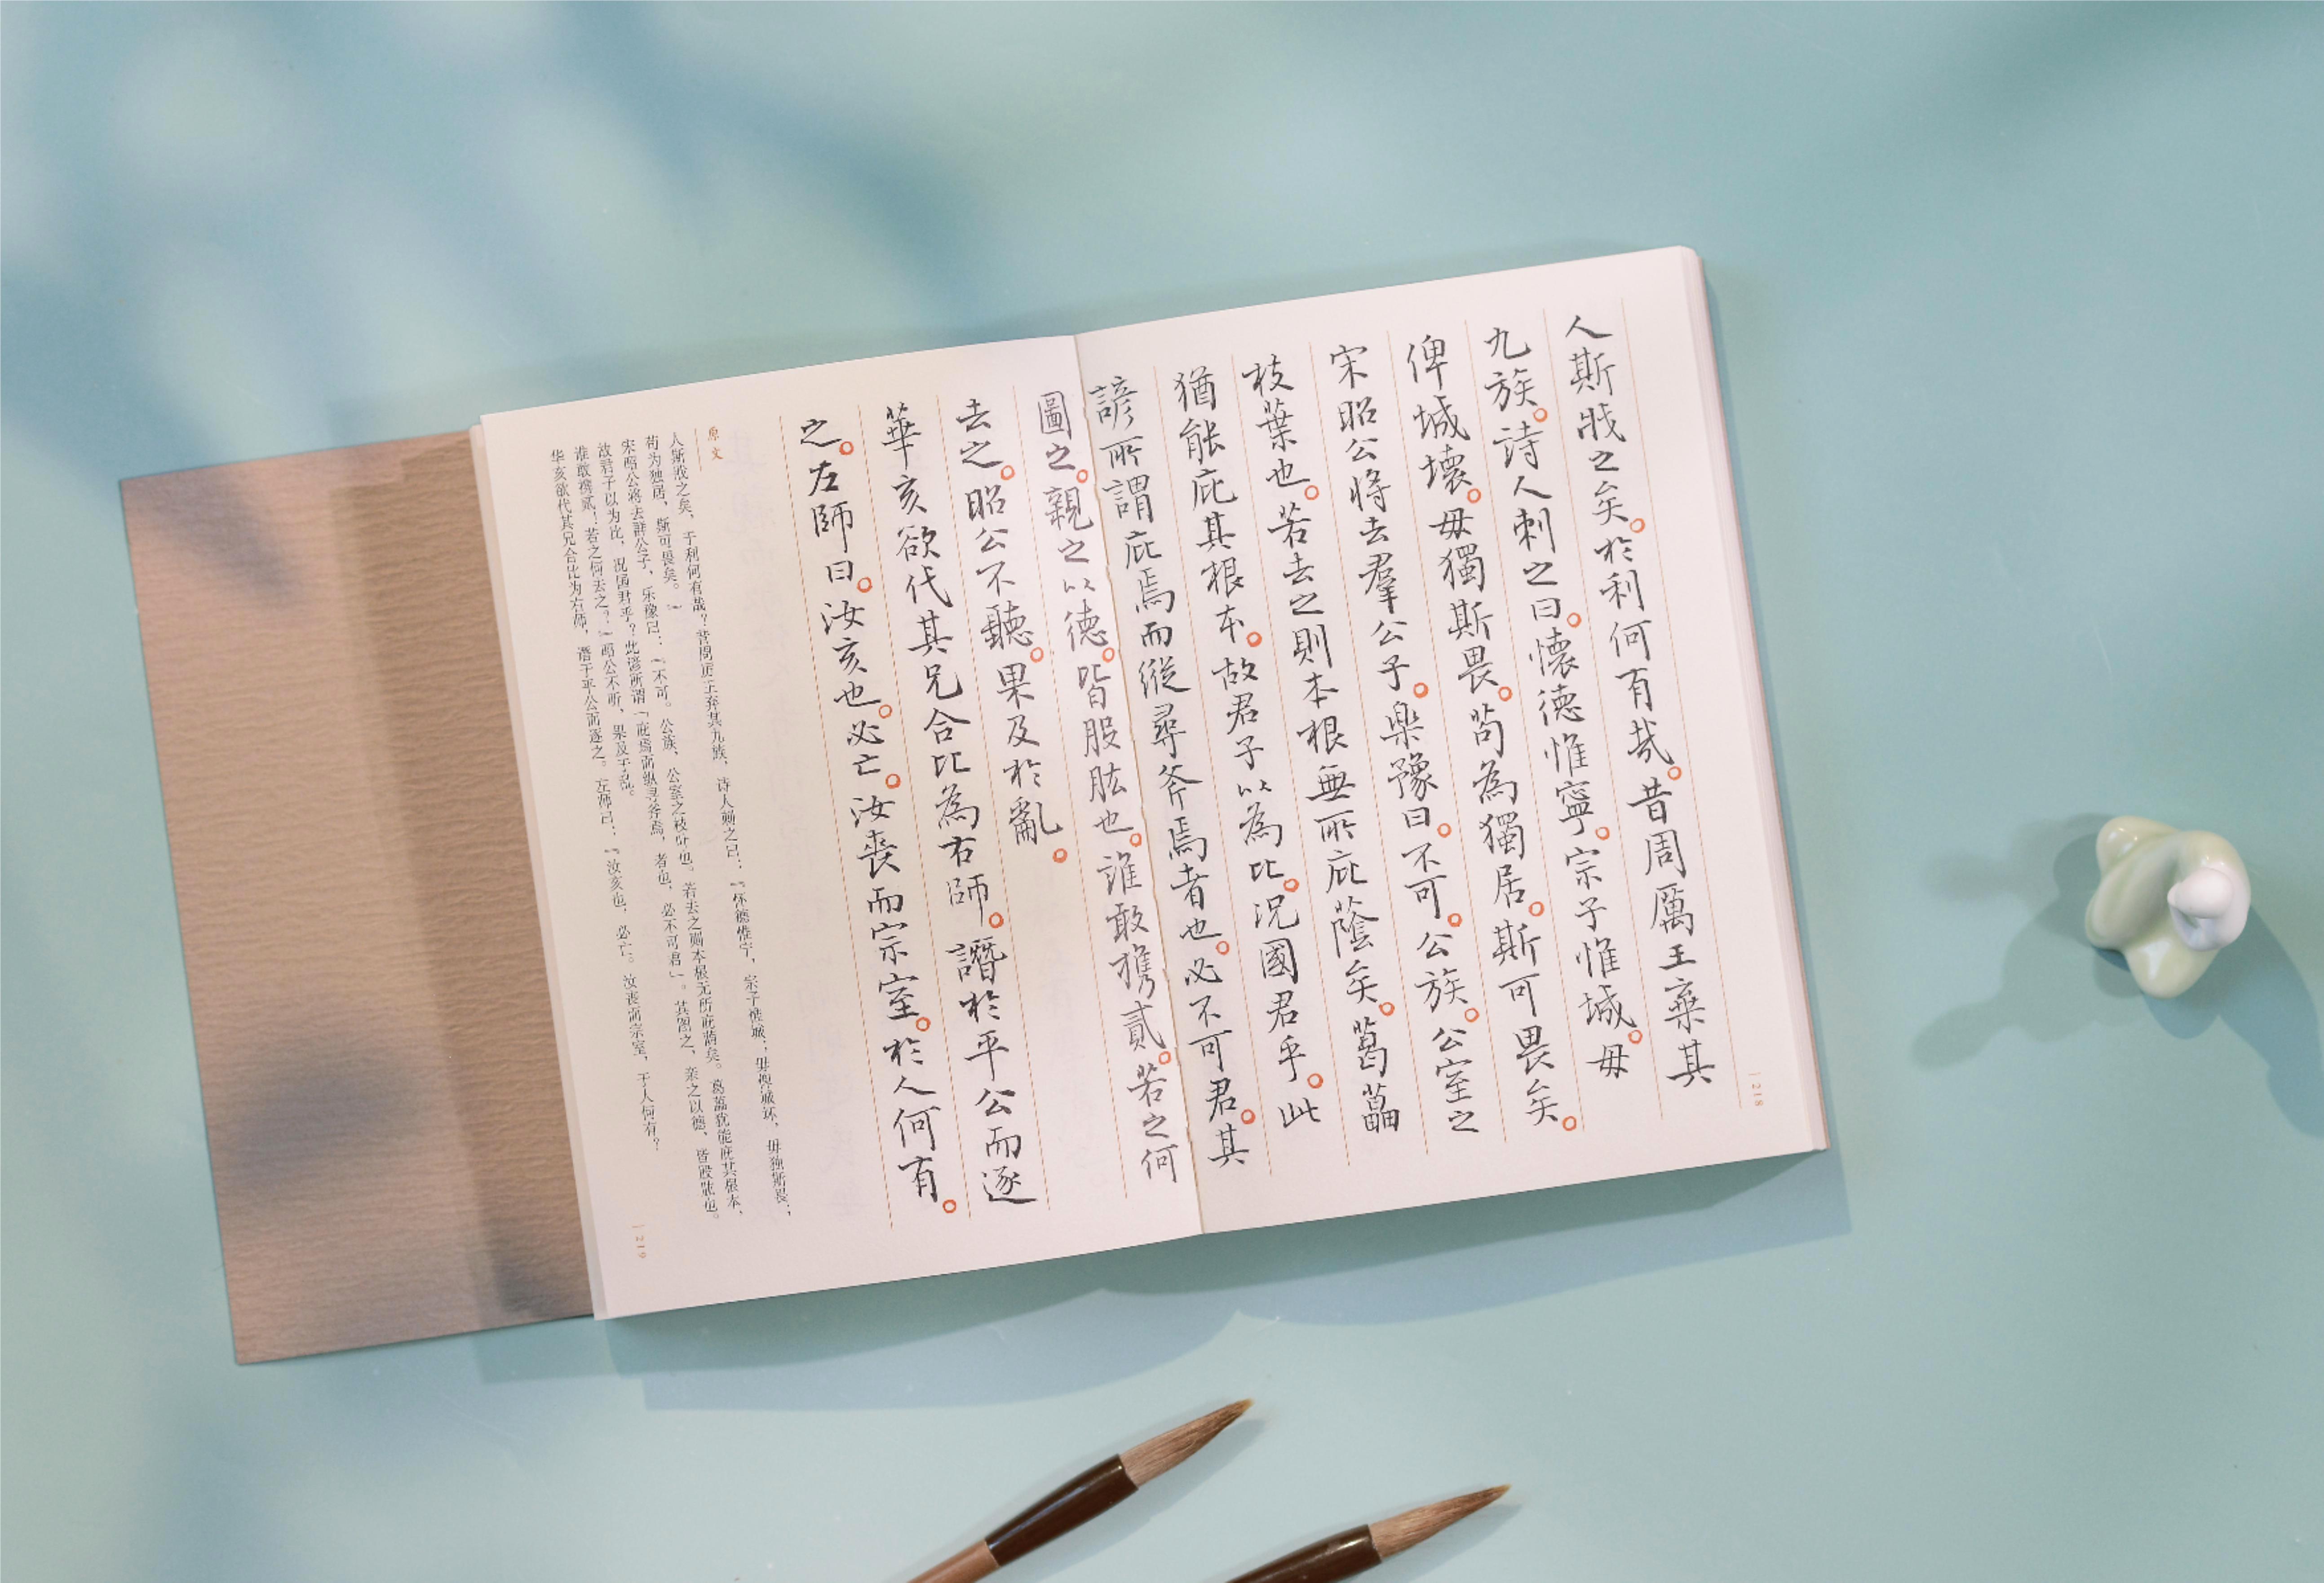 人斯戕之矣。於利何有哉。昔周厲王棄其
九族。詩人刺之曰。懷德惟寧。宗子惟城。毋
俾城壞。毋獨斯畏。苟為獨居。斯可畏矣。
宋昭公將去羣公子。樂豫曰。不可。公族。公室之
枝葉也。若去之則本根無所庇蔭矣。葛藟
猶能庇其根本。故君子以為比。況國君乎。此
諺所謂庇焉而縱尋斧焉者也。必不可君。其
218
圖之。親之以德。皆股肱也。誰敢攜貳。若之何
去之。昭公不聽。果及於亂。
華亥欲代其兄合比為右師。譖於平公而逐
之。左師曰。汝亥也。必亡。汝喪而宗室。於人何有。
原文
人斯戕之矣，于利何有哉？昔周厉王弃其九族，诗人刺之曰：“怀德惟宁，宗子惟城；毋俾城坏，毋独斯畏；
苟为独居，斯可畏矣。”
宋昭公将去群公子，乐豫曰：“不可。公族，公室之枝叶也。若去之则本根无所庇荫矣。葛藟犹能庇其根本，
故君子以为比，况国君乎？此谚所谓「庇焉而纵寻斧焉，者也，必不可君」。其图之，亲之以德，皆股肱也。
谁敢携贰！若之何去之？”昭公不听，果及于乱。
华亥欲代其兄合比为右师，谮于平公而逐之。左师曰：“汝亥也，必亡。汝丧而宗室，于人何有？
219